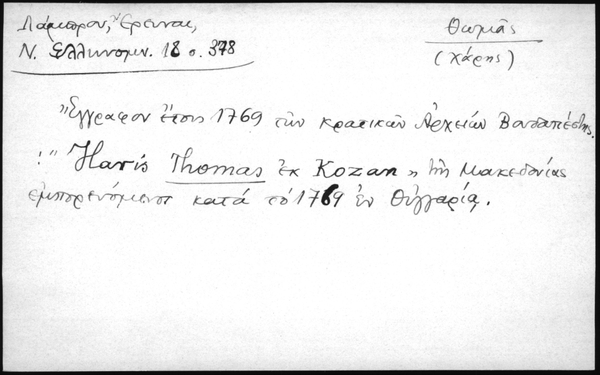 Λάμπρου, Ἔρευναι,
Ν. Ἑλληνομν. 18 σ. 378
Θωμᾶς
(Χάρης)
"Ἔγγραφον ἔτους 1769 τῶν κρατικῶν Ἀρχείων Βουδαπέστης.
:" Haris Thomas ἐκ Kozan „ τῆς Μακεδονίας
ἐμπορευόμενος κατά τό 1769 ἐν Οὑγγαρίᾳ.